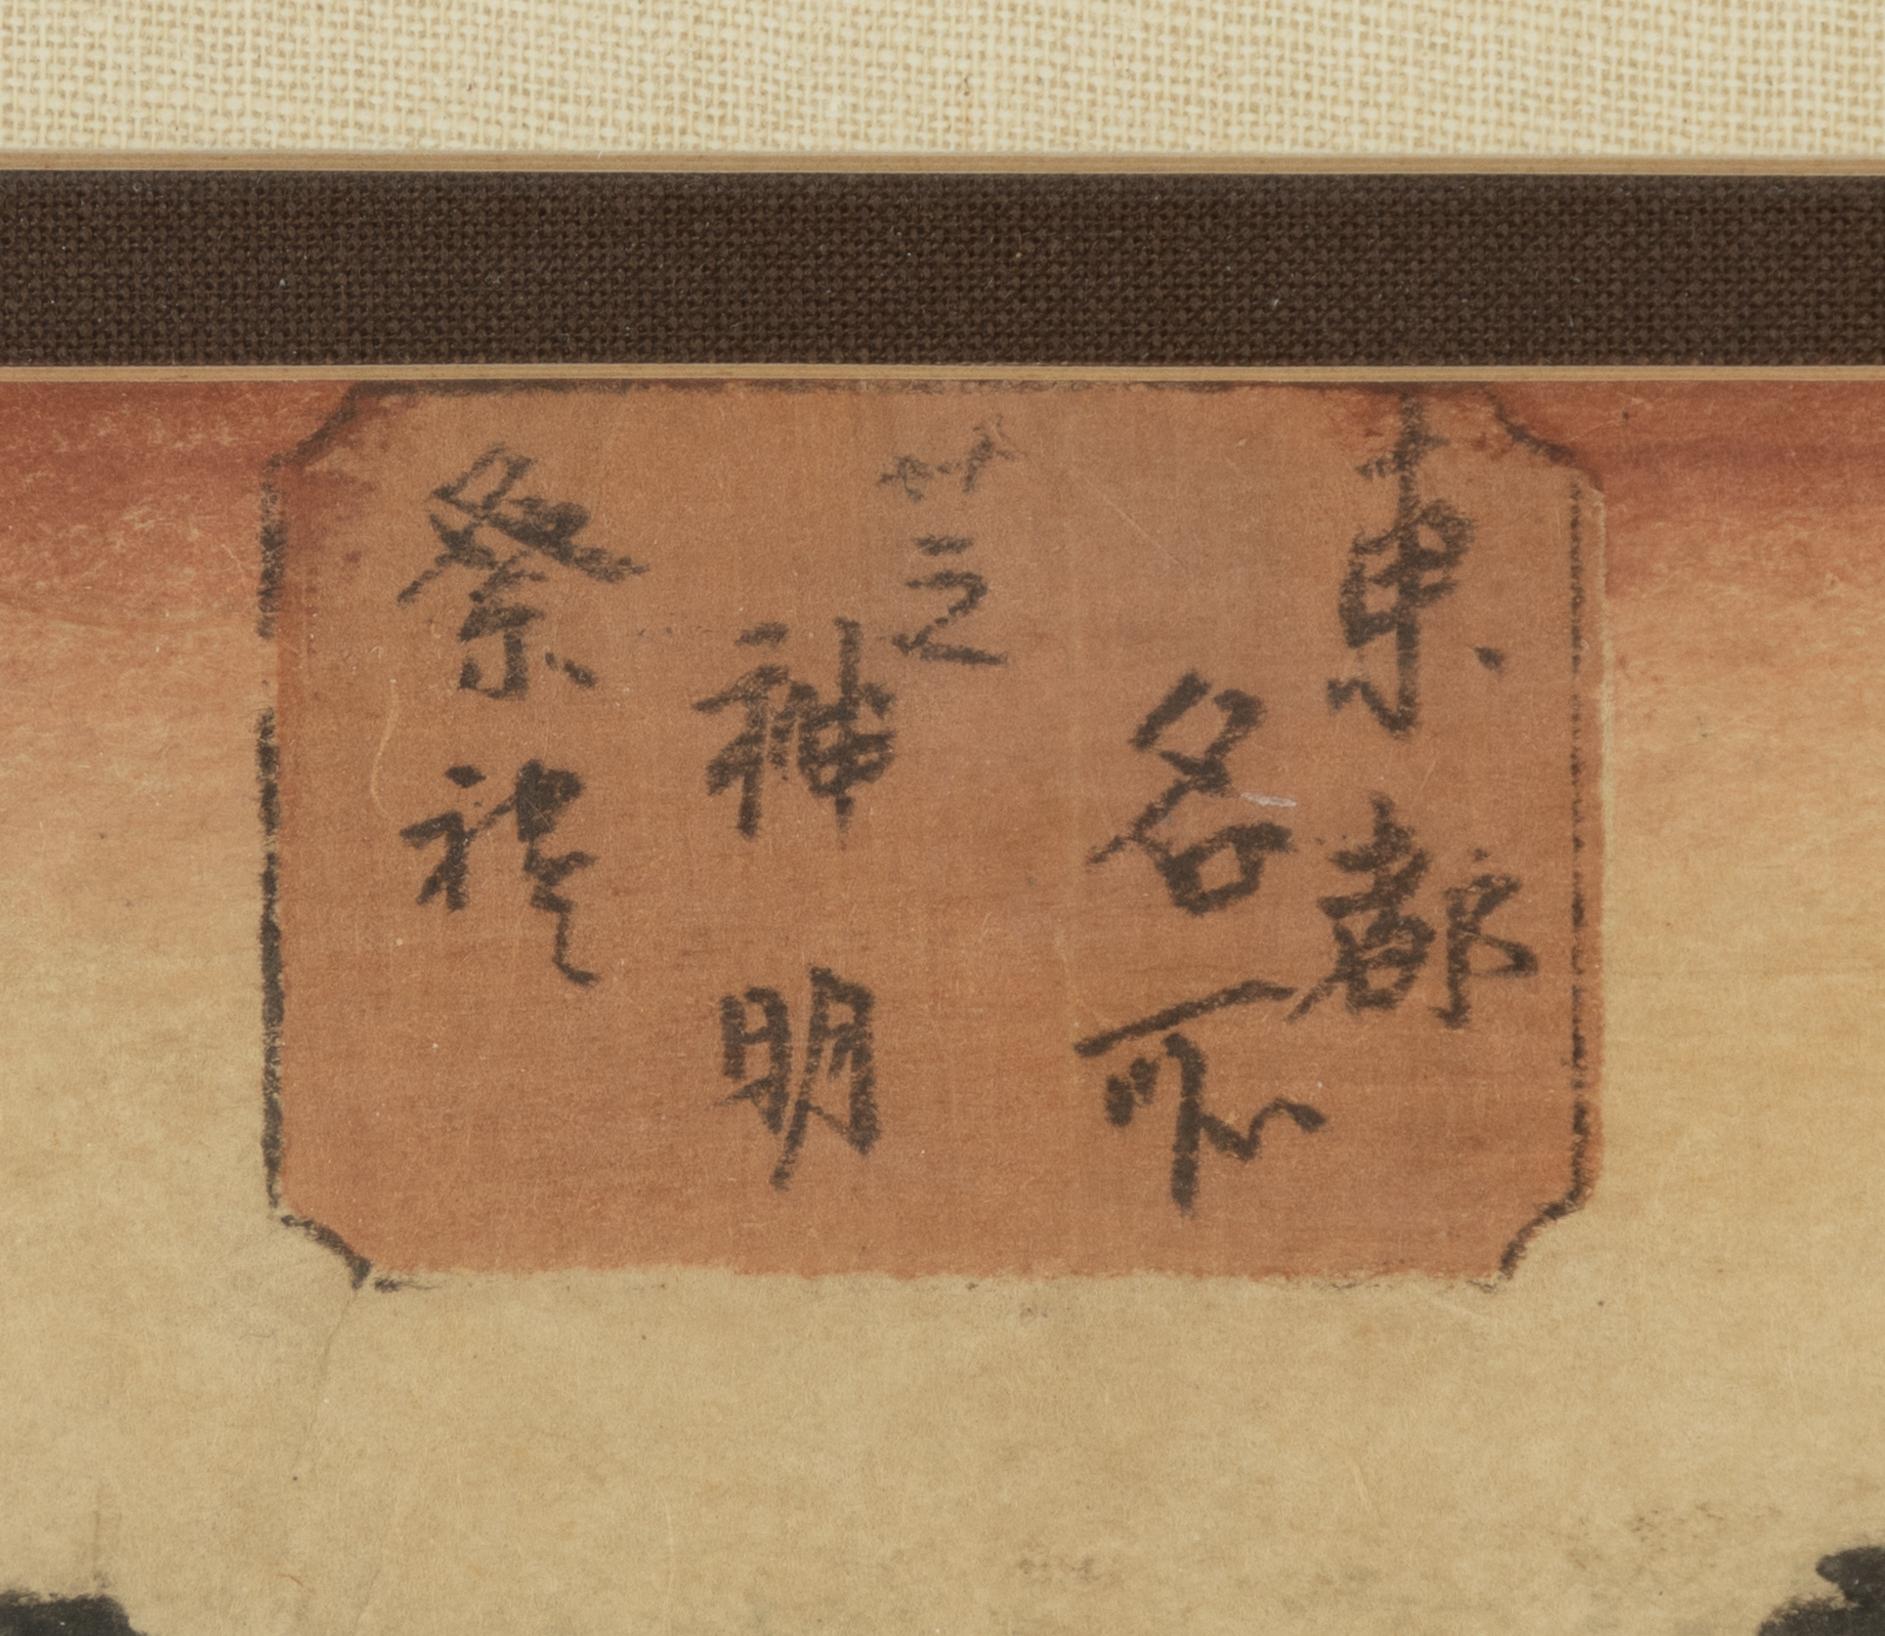 東都
名所
芝
神明
祭礼